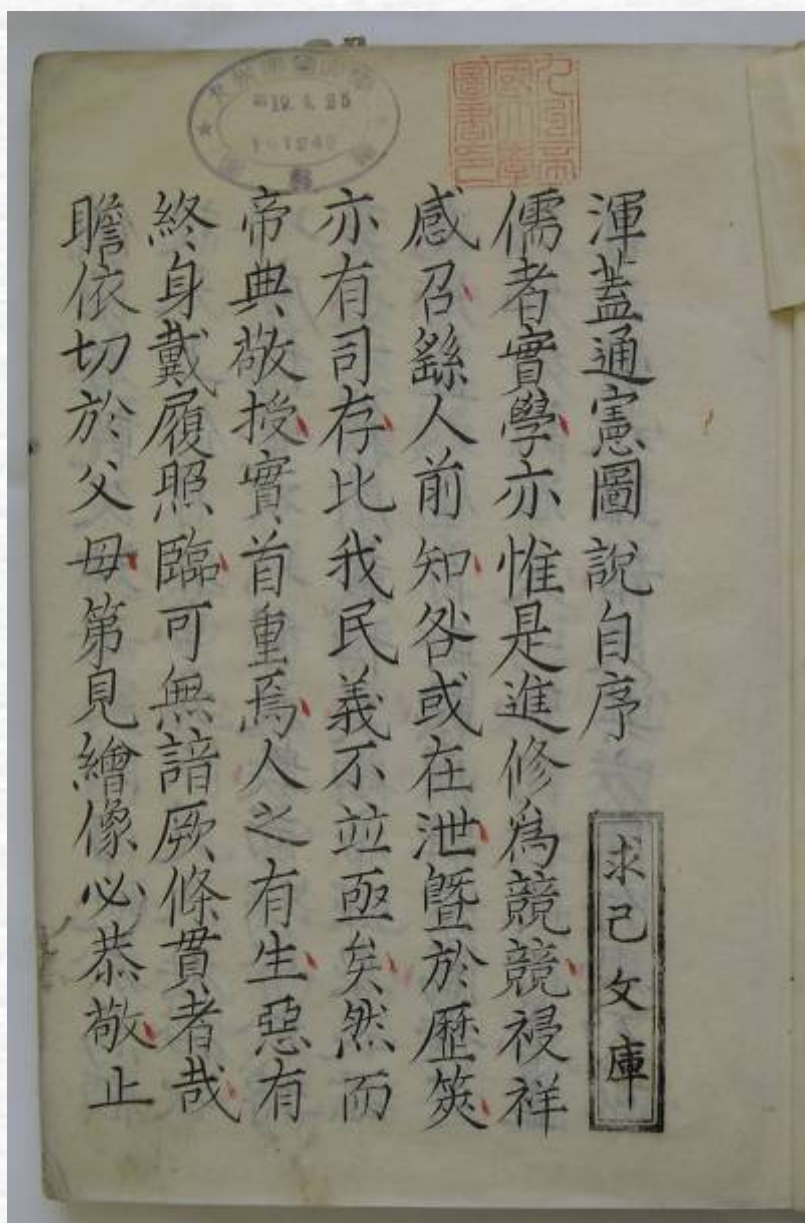 九州帝
國大學
圖書印
渾蓋通憲圖說自序
求己文庫
儒者實學亦惟是進修爲競競祲祥
感召繇人前知咎或在泄暨於歷筴
亦有司存比我民義不竝亟矣然而
帝典敬授實首重焉人之有生惡有
終身戴履照臨可無諳厥條貫者哉
瞻依切於父母第見繪像必恭敬止